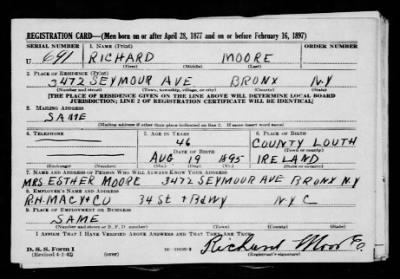 REGISTRATION CARD—(Men born on or after April 28, 1877 and on or before February 16, 1897)
SERIAL NUMBER 1. NAME (Print)
U 691 RICHARD MOORE
(First) (Middle) (Last)
2. PLACE OF RESIDENCE (Print)
3472 SEYMOUR AVE BRONX NY
(Number and street) (Town, township, village, or city) (County) (State)
[THE PLACE OF RESIDENCE GIVEN ON THE LINE ABOVE WILL DETERMINE LOCAL BOARD
JURISDICTION; LINE 2 OF REGISTRATION CERTIFICATE WILL BE IDENTICAL]
3. MAILING ADDRESS
SAME
[Mailing address if other than place indicated on line 2. If same insert word same]
4. TELEPHONE 5. AGE IN YEARS 6. PLACE OF BIRTH
46 COUNTY LOUTH
DATE OF BIRTH (Town or county)
AUG 19 1895 IRELAND
(Exchange) (Number) (Mo.) (Day) (Yr.) (State or country)
7. NAME AND ADDRESS OF PERSON WHO WILL ALWAYS KNOW YOUR ADDRESS
MRS ESTHER MOORE 3472 SEYMOUR AVE BRONX N.Y
8. EMPLOYER'S NAME AND ADDRESS
R.H. MACY + CO 34 St + BdWY N Y C
9. PLACE OF EMPLOYMENT OR BUSINESS
SAME
(Number and street or R. F. D. number) (Town) (County) (State)
I AFFIRM THAT I HAVE VERIFIED ABOVE ANSWERS AND THAT THEY ARE TRUE.
D. S. S. Form 1
(Revised 4-1-42) (over) Richard Moore